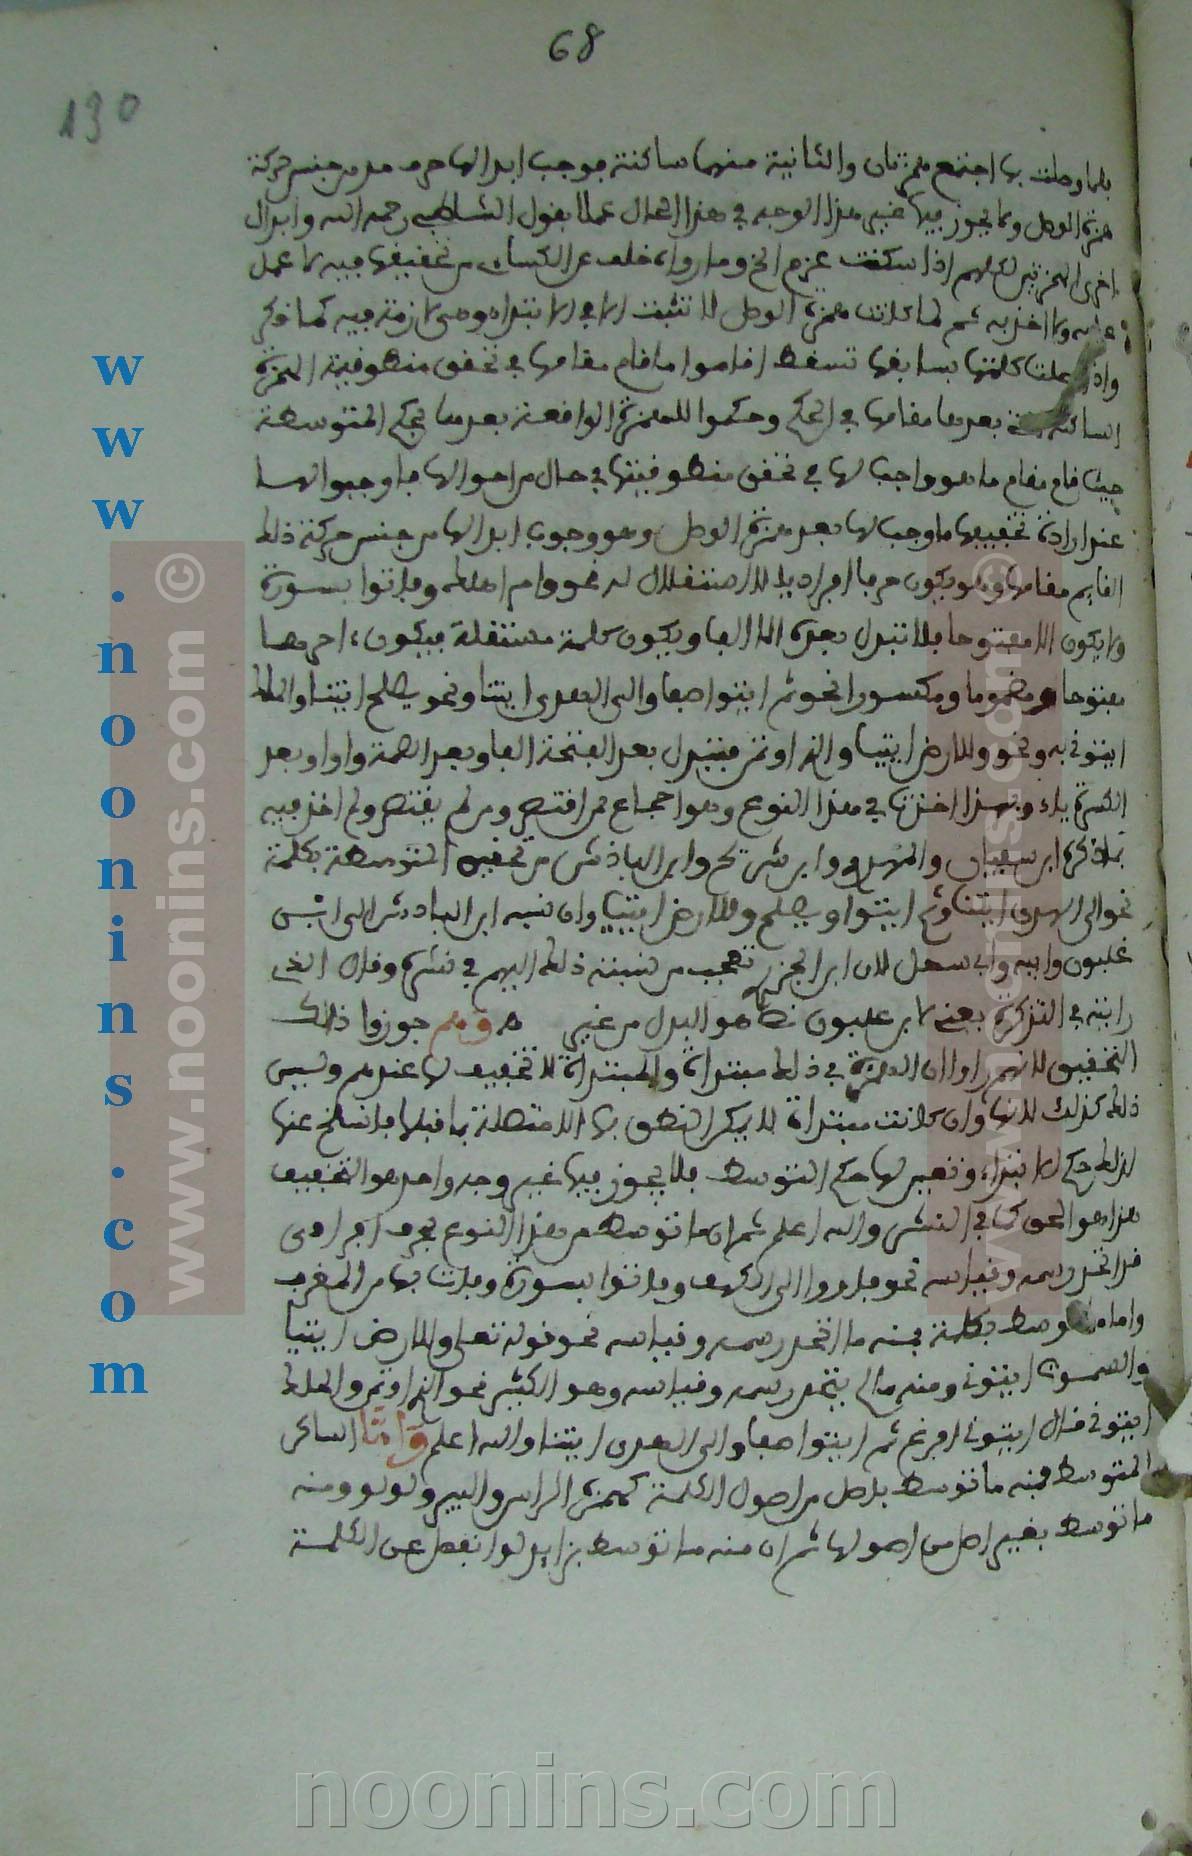 68
130
فلما وصلت بها اجتمع همزتان والثانية منهما ساكنة فوجب ابدالها حرف مد من جنس حركة
همزة الوصل ولا يجوز فيها غير هذا الوجه في هذا الحال عملا بقول الشاطبي رحمه الله وابدال
اخرى الهمزتين لكلهم اذا سكنت عزم الخ وما رواه خلف عن الكسائي من تحقيقها فيه لا عمل
عليه ولا اخذ به ثم لما كانت همزة الوصل لا تثبت الا في الابتداء وهي لازمة فيه كما ذكر
واذا وصلت كلمتها بسابقها تسقط اقاموا ما قام مقامها في تحقق منطوقية الهمزة
الساكنة بعدها مقامها في الحكم وحكموا للهمزة الواقعة بعدها بحكم المتوسطة
حيث قام مقام ما هو واجب لها في تحقق منطوقيتها في حال من احوالها فاوجبوا لها
عند ارادة تخفيفها ما وجب لها بعد همزة الوصل وهو وجوب ابدالها من جنس حركة ذلك
القايم مقامها وهو يكون حرفا افراديا لا استقلال له نحو وامر اهلك وفاتوا بسورة
ولا يكون الا مفتوحا فلا تبدل بعده الا الفا ويكون كلمة مستقلة فيكون ءاخرها
مفتوحا ومضموما ومكسورا نحو ثم ايتوا صفا والى الهدى ايتنا ونحو يصلح ايتنا والملك
ايتوني به ونحو وللارض ايتيا والذي اوتمن فتبدل بعد الفتحة الفا وبعد الضمة واوا وبعد
الكسرة ياء وبهذا اخذنا في هذا النوع وهو اجماع ممن اقتصر ومن لم يقتصر ولم اخذ فيه
بما ذكره ابن سفيان والمهدوي وابن شريح وابن الباذش من تحقيق المتوسطة بكلمة
نحو الى الهدى ايتنا وثم ايتوا ويصلح وللارض ايتيا وان نسبه ابن الباذش الى ابني
غلبون وابيه وابي سهل لان ابن الجزري تعجب من نسبته ذلك اليهم في نشره وقال الذي
رايته في التذكرة يعني لابن غلبون نصا هو البدل من غير ه وهم جوزوا ذلك
التخفيق لانهم راوا ان الهمزة في ذلك مبتداة والمبتداة لا تخفيف لها عندهم وليس
ذلك كذلك لانها وان كانت مبتداة لا يمكن النطق بها الا متصلة بما قبلها فانسلخ عنها
لذلك حكم الابتداء وتعين لها حكم التوسط فلا يجوز فيها غير وجه واحد هو التخفيف
هذا هو الحق كما في النشر والله اعلم ثم ان ما توسط من هذا النوع بحرف افرادي
قد اتحد رسمه وقياسه نحو فاووا الى الكهف وفاتوا بسورة وفات بها من المغرب
واما ما توسط بكلمة فمنه ما اتحد رسمه وقياسه نحو قوله تعلى وللارض ايتيا
والسموت ايتوني ومنه ما لم يتحد رسمه وقياسه وهو الكثير نحو الذي اوتمن والملك
ايتوني قال ايتوني افرغ ثم ايتوا صفا والى الهدى ايتنا والله اعلم واما الساكن
المتوسط فمنه ما توسط باصل من اصول الكلمة كهمزة الراس والبير ولولو ومنه
ما توسط بغير اصل من اصولها ثم ان منه ما توسط بزايد لو انفصل عن الكلمة
www.noonins.com
www.noonins.com ©
www.noonins.com ©
noonins.com